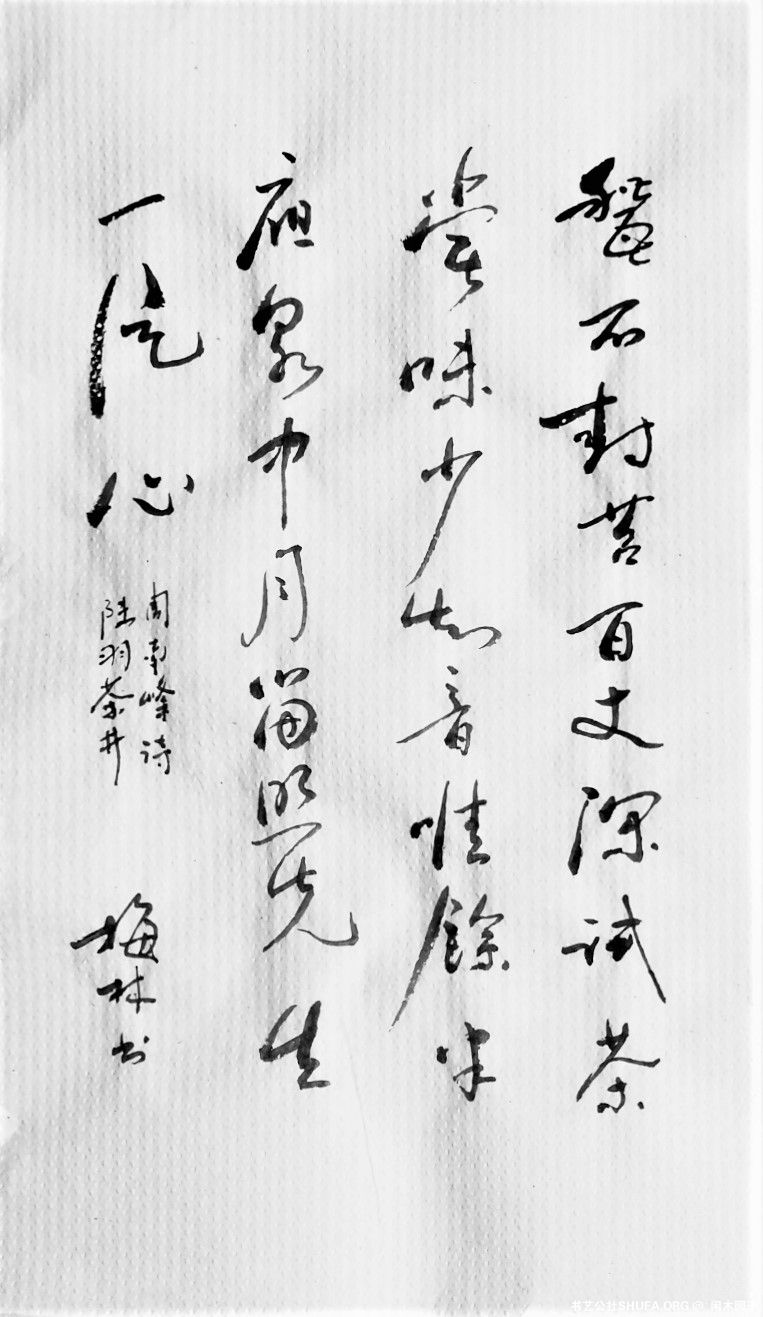 甃石封苔百丈深试茶
嘗味少知音唯餘半
夜泉中月留照先生
一片心
周南峰诗
陆羽茶井
梅林书
书艺公社SHUFA.ORG @